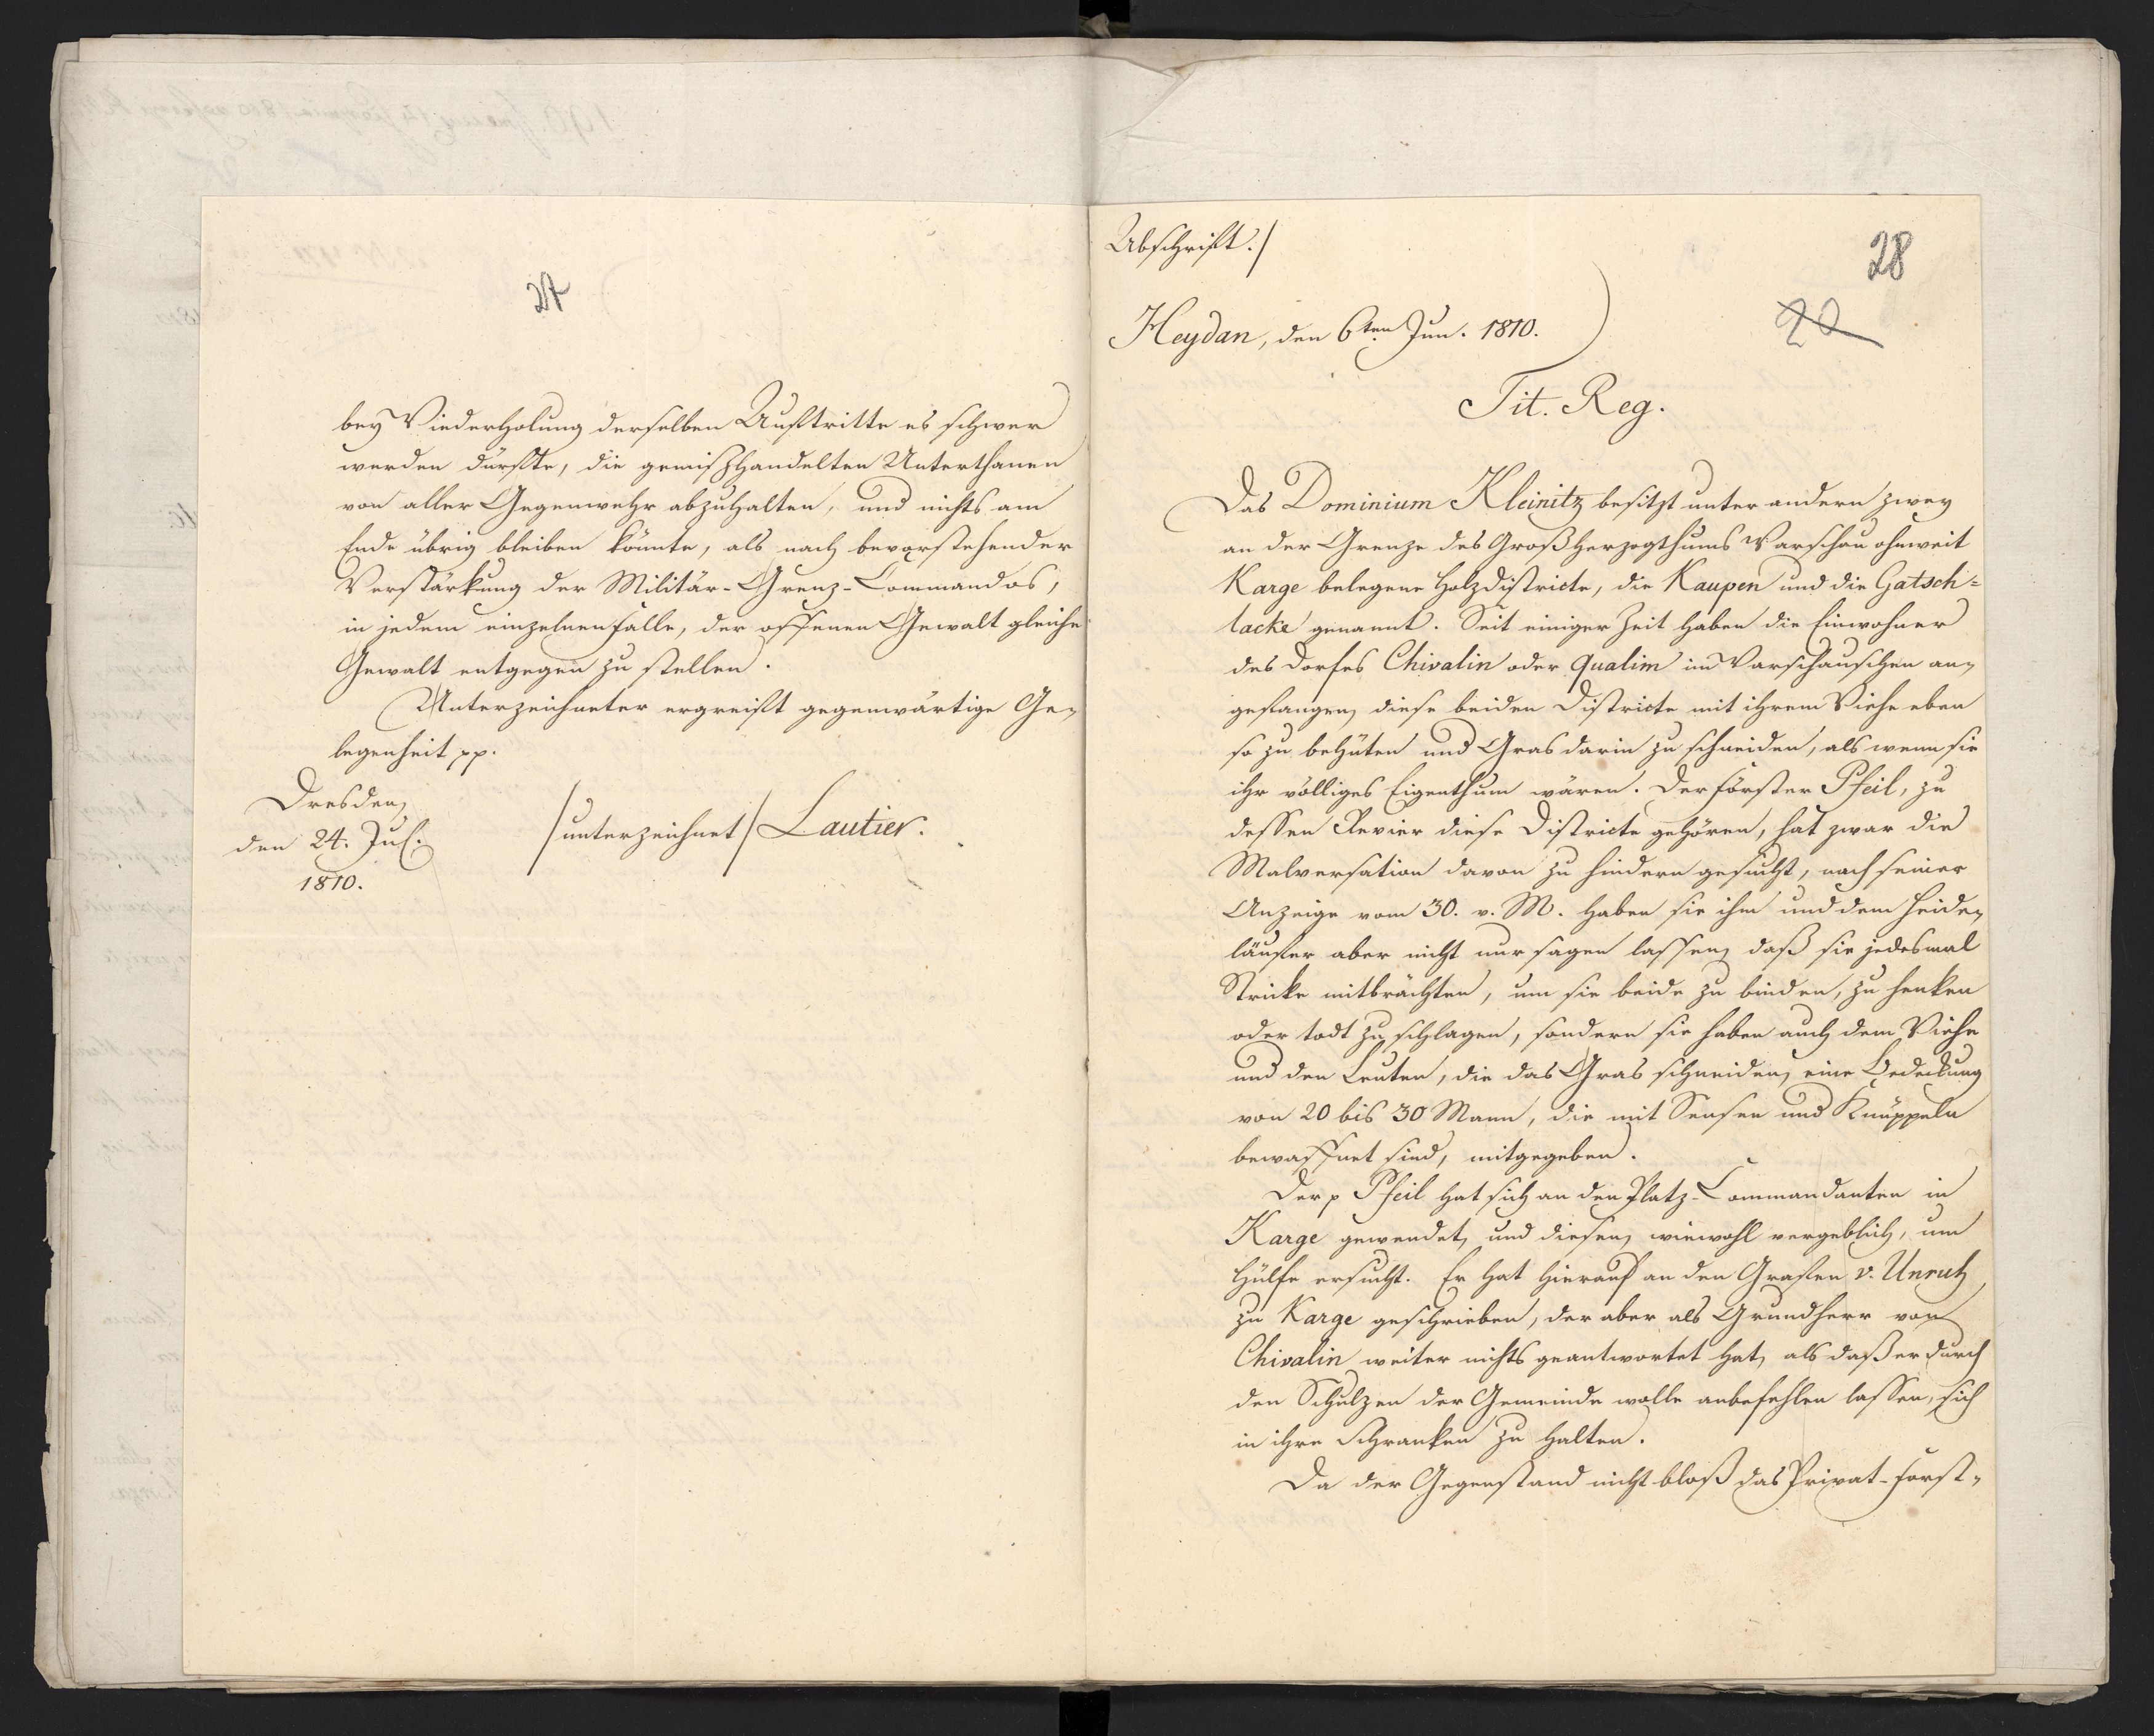 27
bey Wiederholung derselben Auftritte es schwer
werden dürfte, die gemißhandelten Unterthanen
von aller Gegenwehr abzuhalten, und nichts am
Ende übrig bleiben könnte, als nach bevorstehender
Verstärkung der Militär-Grenz-Commandos,
in jedem einzelnen Falle, der offenen Gewalt gleiche
Gewalt entgegen zu stellen.
Unterzeichneter ergreift gegenwärtige Ge-
legenheit pp.
Dresden,
den 24. Jul.
1810.
/unterzeichnet/ Lautier.
Abschrift./
28
20
Heydan, den 6ten Jun. 1810.
Tit. Reg.
Das Dominium Kleinitz besitzt unter andern zwey
an der Grenze des Großherzogthums Warschau ohnweit
Karge belegene Holzdistricte, die Kaupen und die Gatsch=
lacke genannt. Seit einiger Zeit haben die Einwohner
des Dorfes Chwalin oder Qualim im Warschauschen an-
gefangen, diese beiden Districte mit ihrem Viehe eben
so zu behüten und Gras darin zu schneiden, als wenn sie
ihr völliges Eigenthum wären. Der Förster Pfeil, zu
dessen Revier diese Districte gehören, hat zwar die
Malversation davon zu hindern gesucht, nach seiner
Anzeige vom 30. v. M. haben sie ihm und dem Heide-
läufer aber nicht nur sagen lassen, daß sie jedesmal
Stricke mitbrächten, um sie beide zu binden, zu henken
oder todt zu schlagen, sondern sie haben auch dem Viehe
und den Leuten, die das Gras schneiden, eine Bedeckung
von 20 bis 30 Mann, die mit Sensen und Knüppeln
bewaffnet sind, mitgegeben.
Der p Pfeil hat sich an den Platz-Commandanten in
Karge gewendet, und diesen, wiewohl vergeblich, um
Hülfe ersucht. Er hat hierauf an den Grafen v. Unruh
zu Karge geschrieben, der aber als Grundherr von
Chwalin weiter nichts geantwortet hat, als daß er durch
den Schulzen der Gemeinde wolle anbefehlen lassen, sich
in ihre Schranken zu halten.
Da der Gegenstand nicht bloß das Privat-Forst-